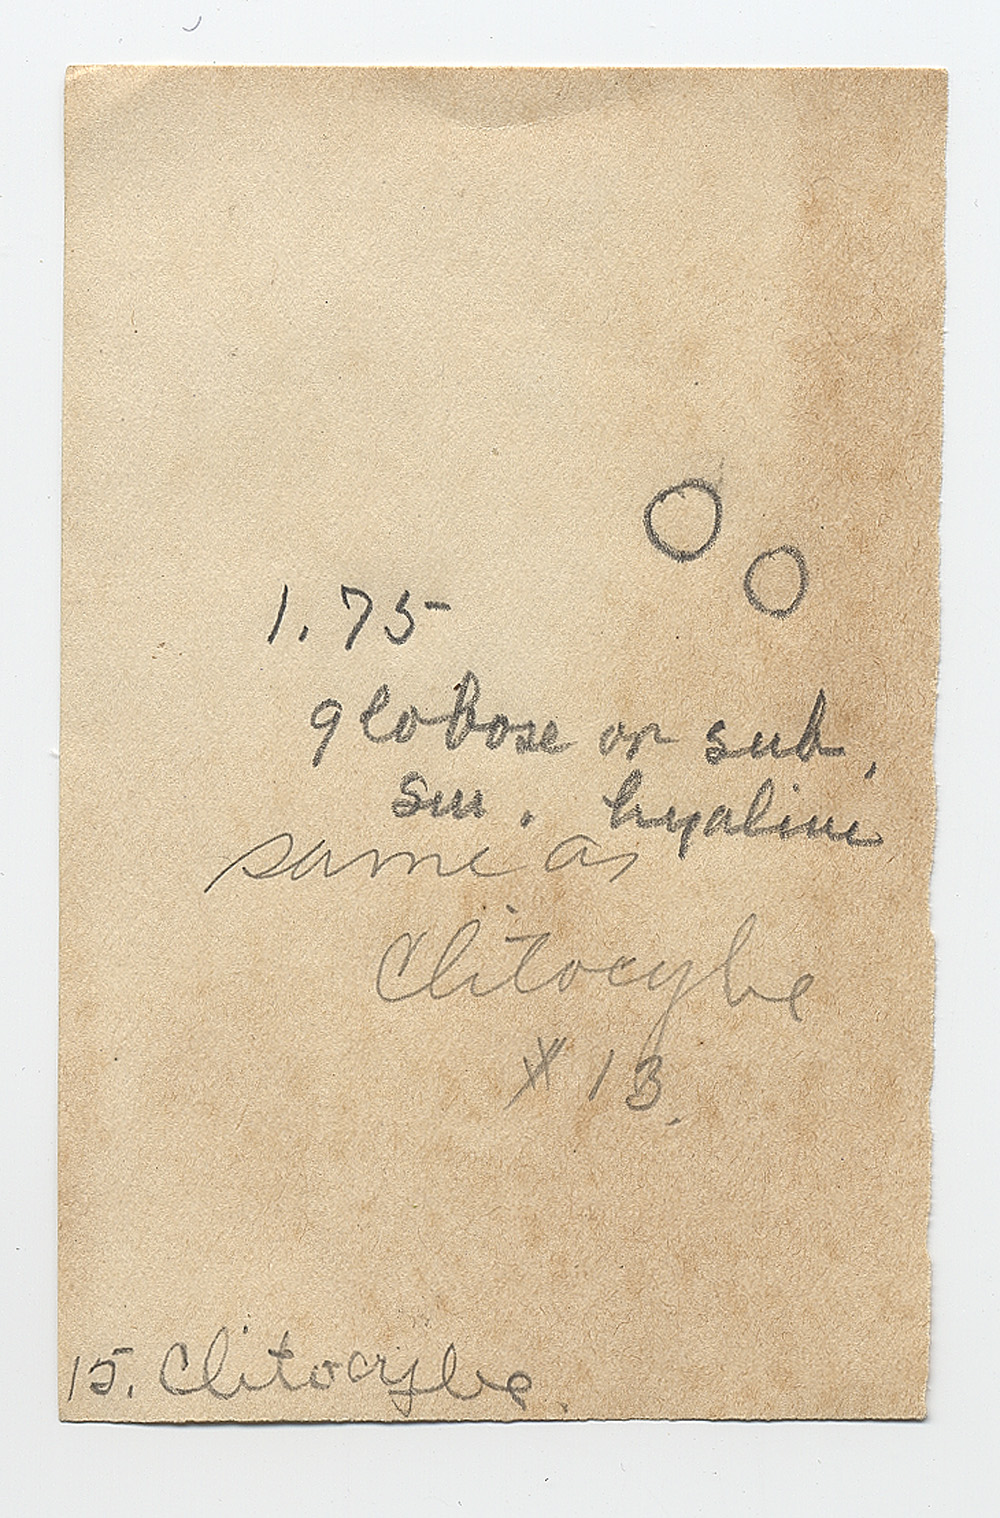 1.75
globose or sub,
sm. hyaline
same as
Clitocybe
# 13.
15. Clitocybe